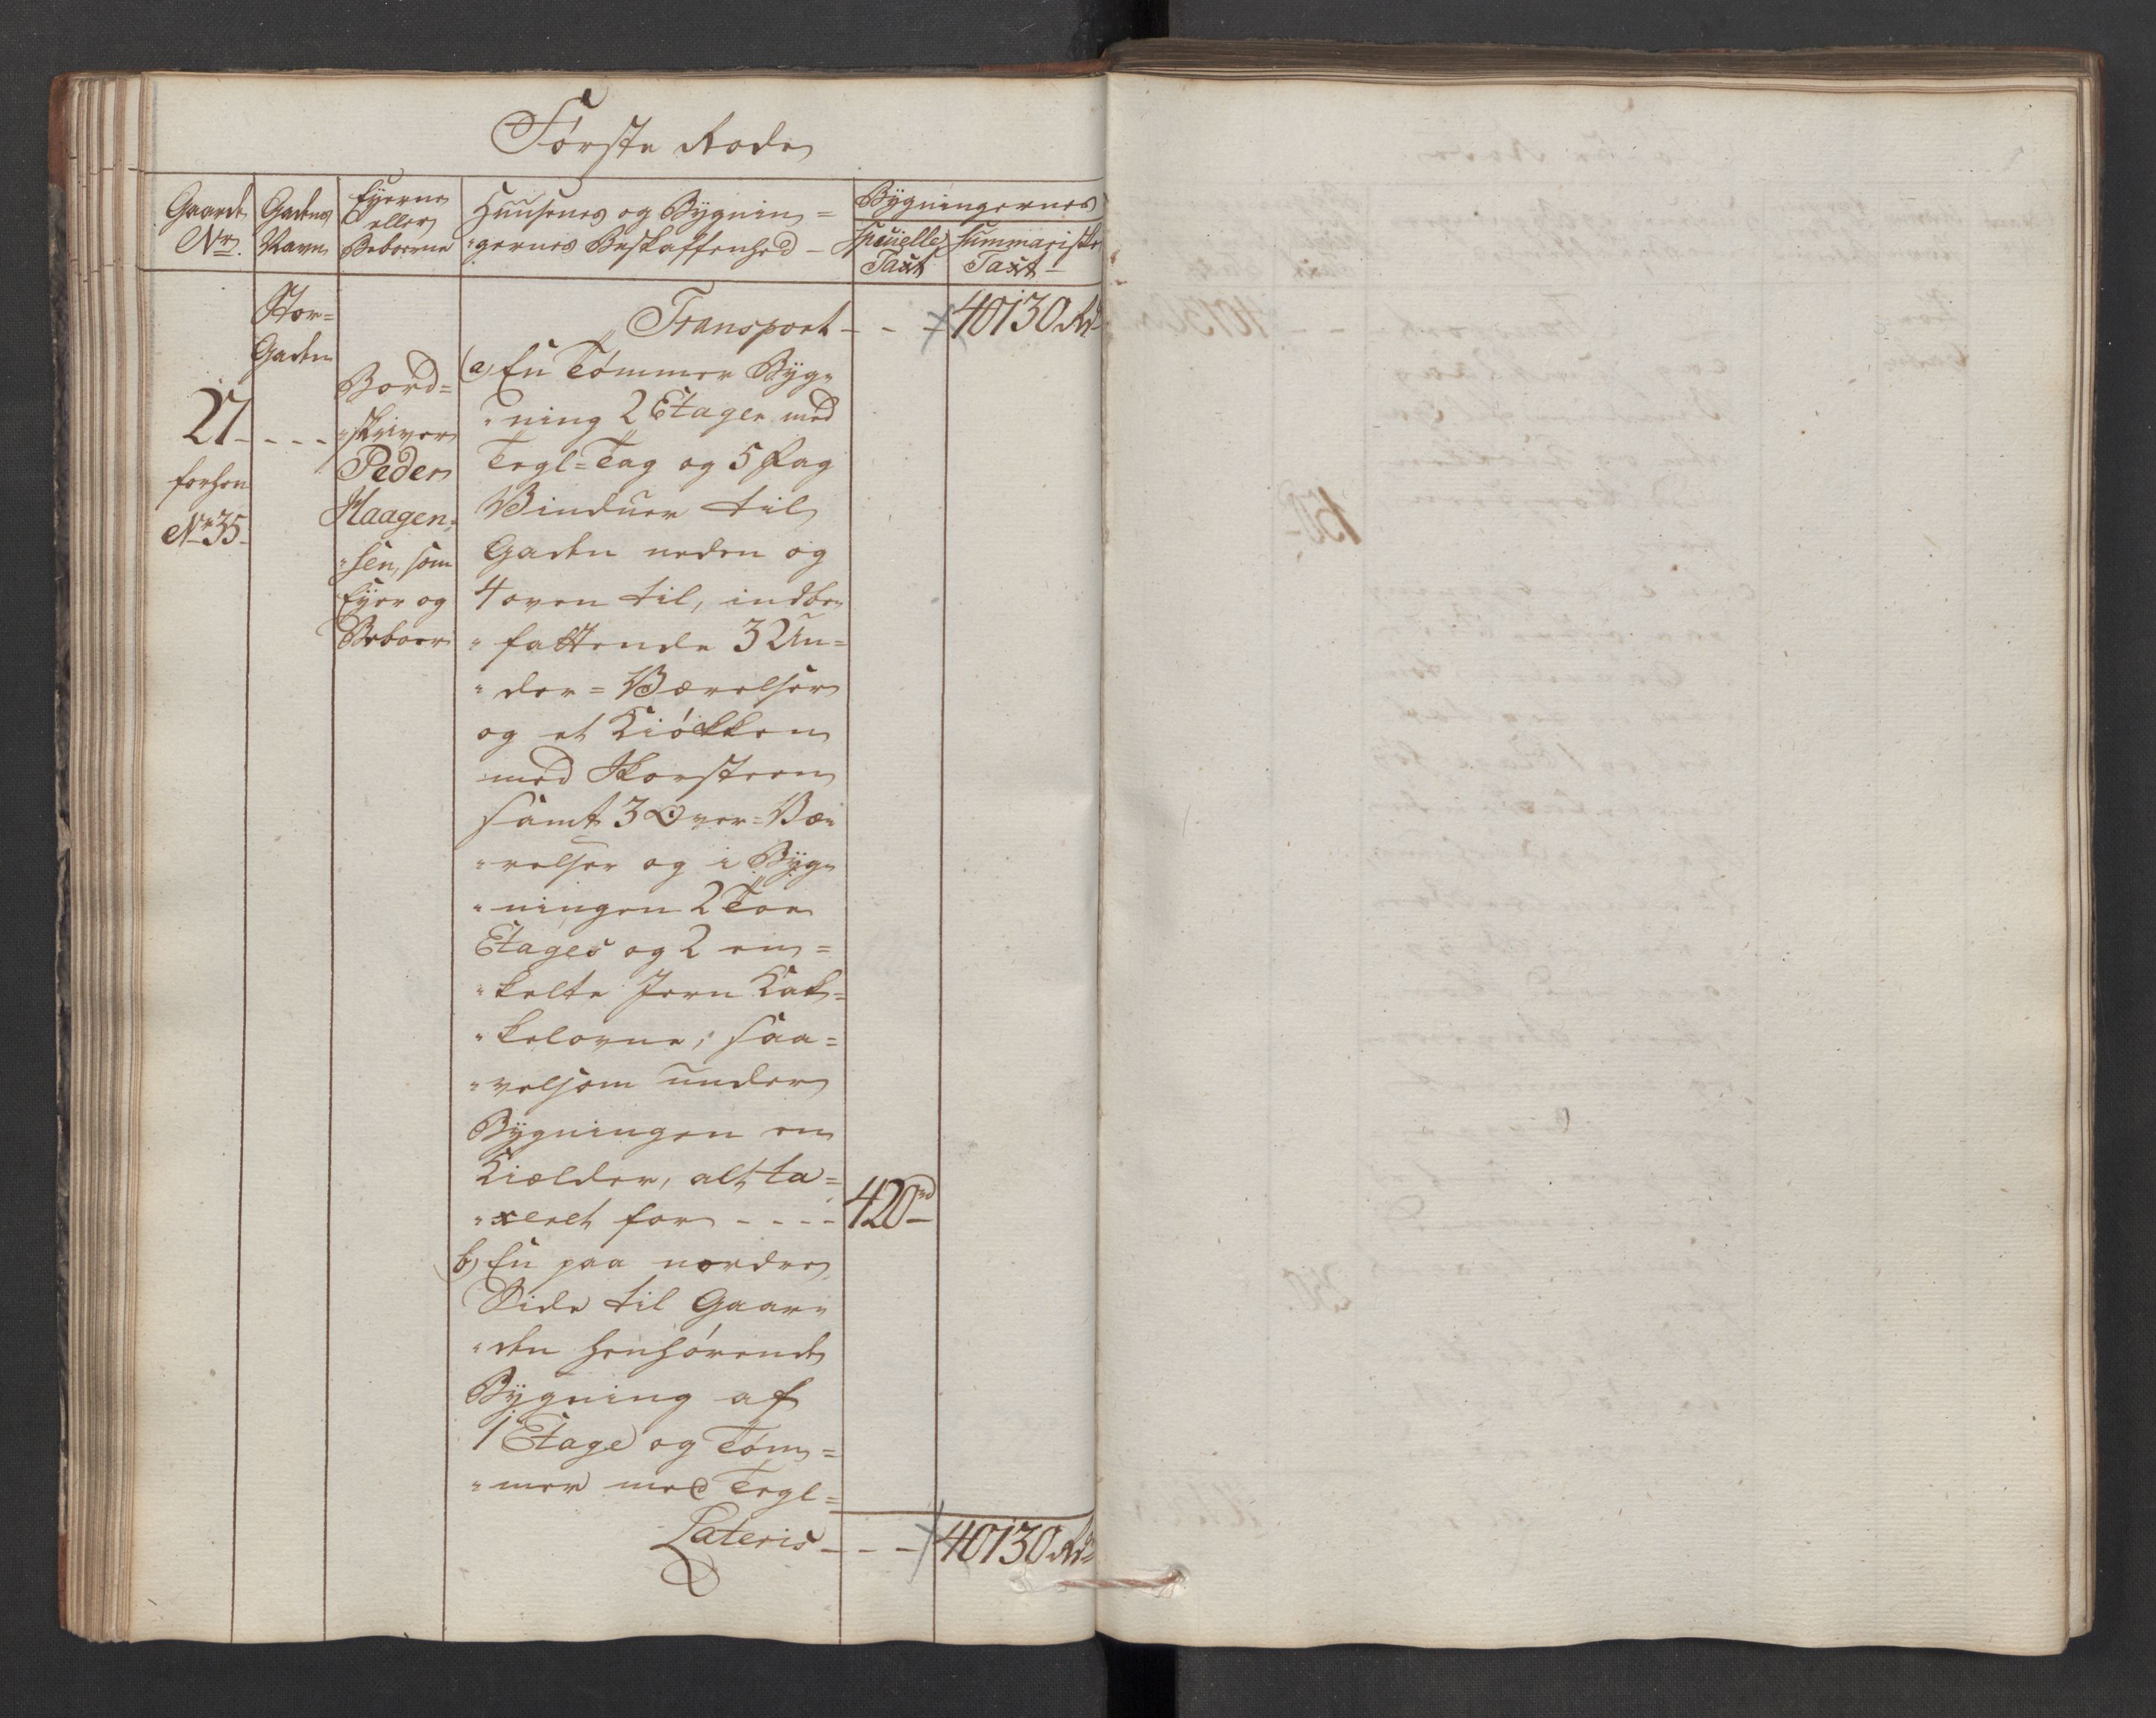 Første Rode
Gaarde Nr.
Gadens Navn
Eyerne eller Beboerne
Huusenes og Bygnin=
"gernes Beskaffenhed -
Bygningernes
Specielle Taxt
Summariske Taxt
Stor=
Gaden
27 - - - -
forhen
Nr 35
Bord=
"skriver
Peder
Haagen=
"sen, som
Eyer og
Beboer
Transport - - - 40130 Rd
a) En Tømmer Byg=
"ning 2 Etager med
Tegl=Tag og 5 Fag
Vinduer til
Gaden neden og
4 oven til, indbe=
"fattende 3 Un=
"der=Værelser
og et Kiøkken
med Skorsteen
samt 3 Over=Væ=
"relser og i Byg=
"ningen 2 Toe
Etages og 2 en=
"kelte Jern Kak=
"kelovne; saa=
"velsom under
Bygningen en
Kielder, alt ta=
"xeret for - - - - 420 rd
b) En paa nordre
Side til Gaar=
"den henhørende
Bygning af
1 Etage og Tøm=
"mer med Tegl=
Lateris - - - 40130 Rd